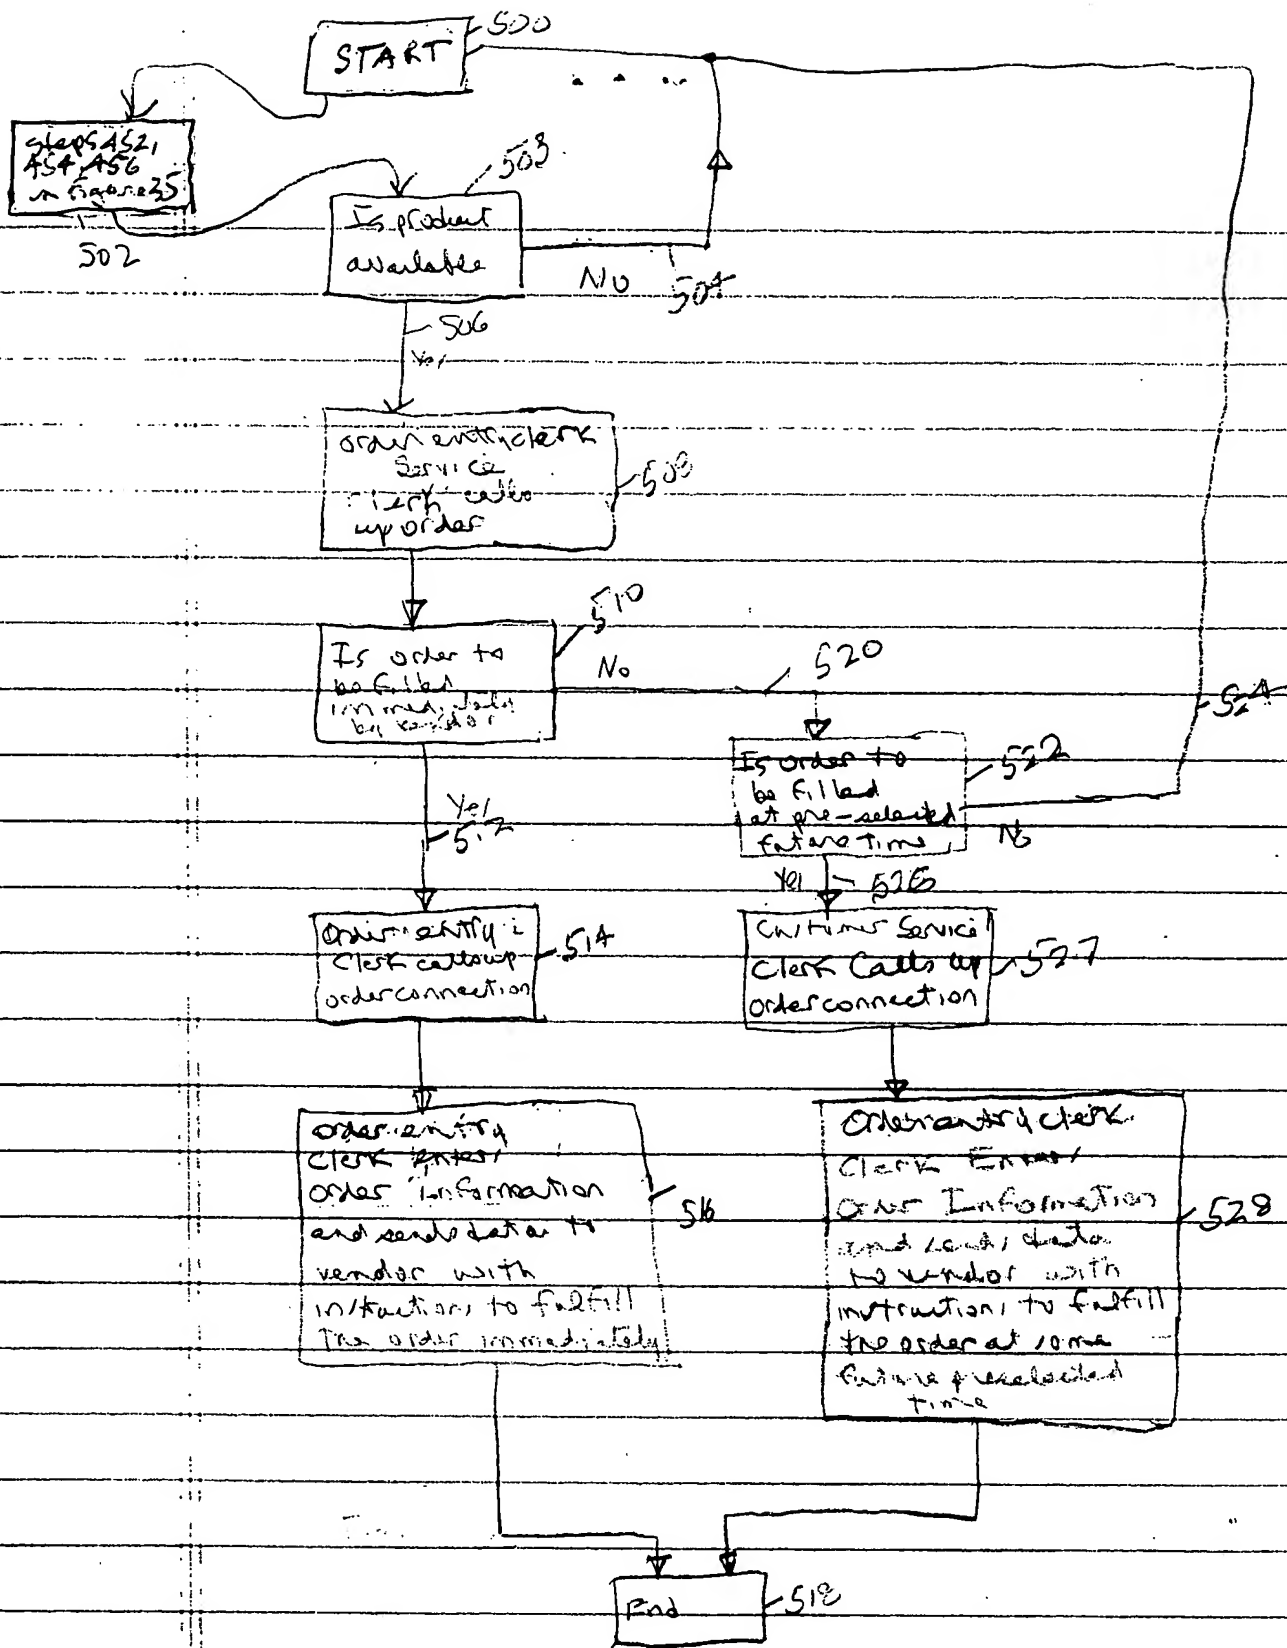 500
START
steps 452,
454, 456
in figure 35
502
503
Is product
available
No
504
506
Yes
order entry clerk
Service
clerk calls
up order
508
510
Is order to
be filled
immediately
by vendor
No
520
524
Is order to
be filled
at pre-selected
future time
522
No
Yes
512
Yes
526
Order entry
Clerk calls up
order connection
514
Customer Service
Clerk Calls up
order connection
527
order entry
Clerk enters
order Information
and sends data to
vendor with
instructions to fulfill
The order immediately
516
Order entry clerk
Clerk Enters
Order Information
and sends data
to vendor with
instructions to fulfill
the order at some
future preselected
time
528
End
518